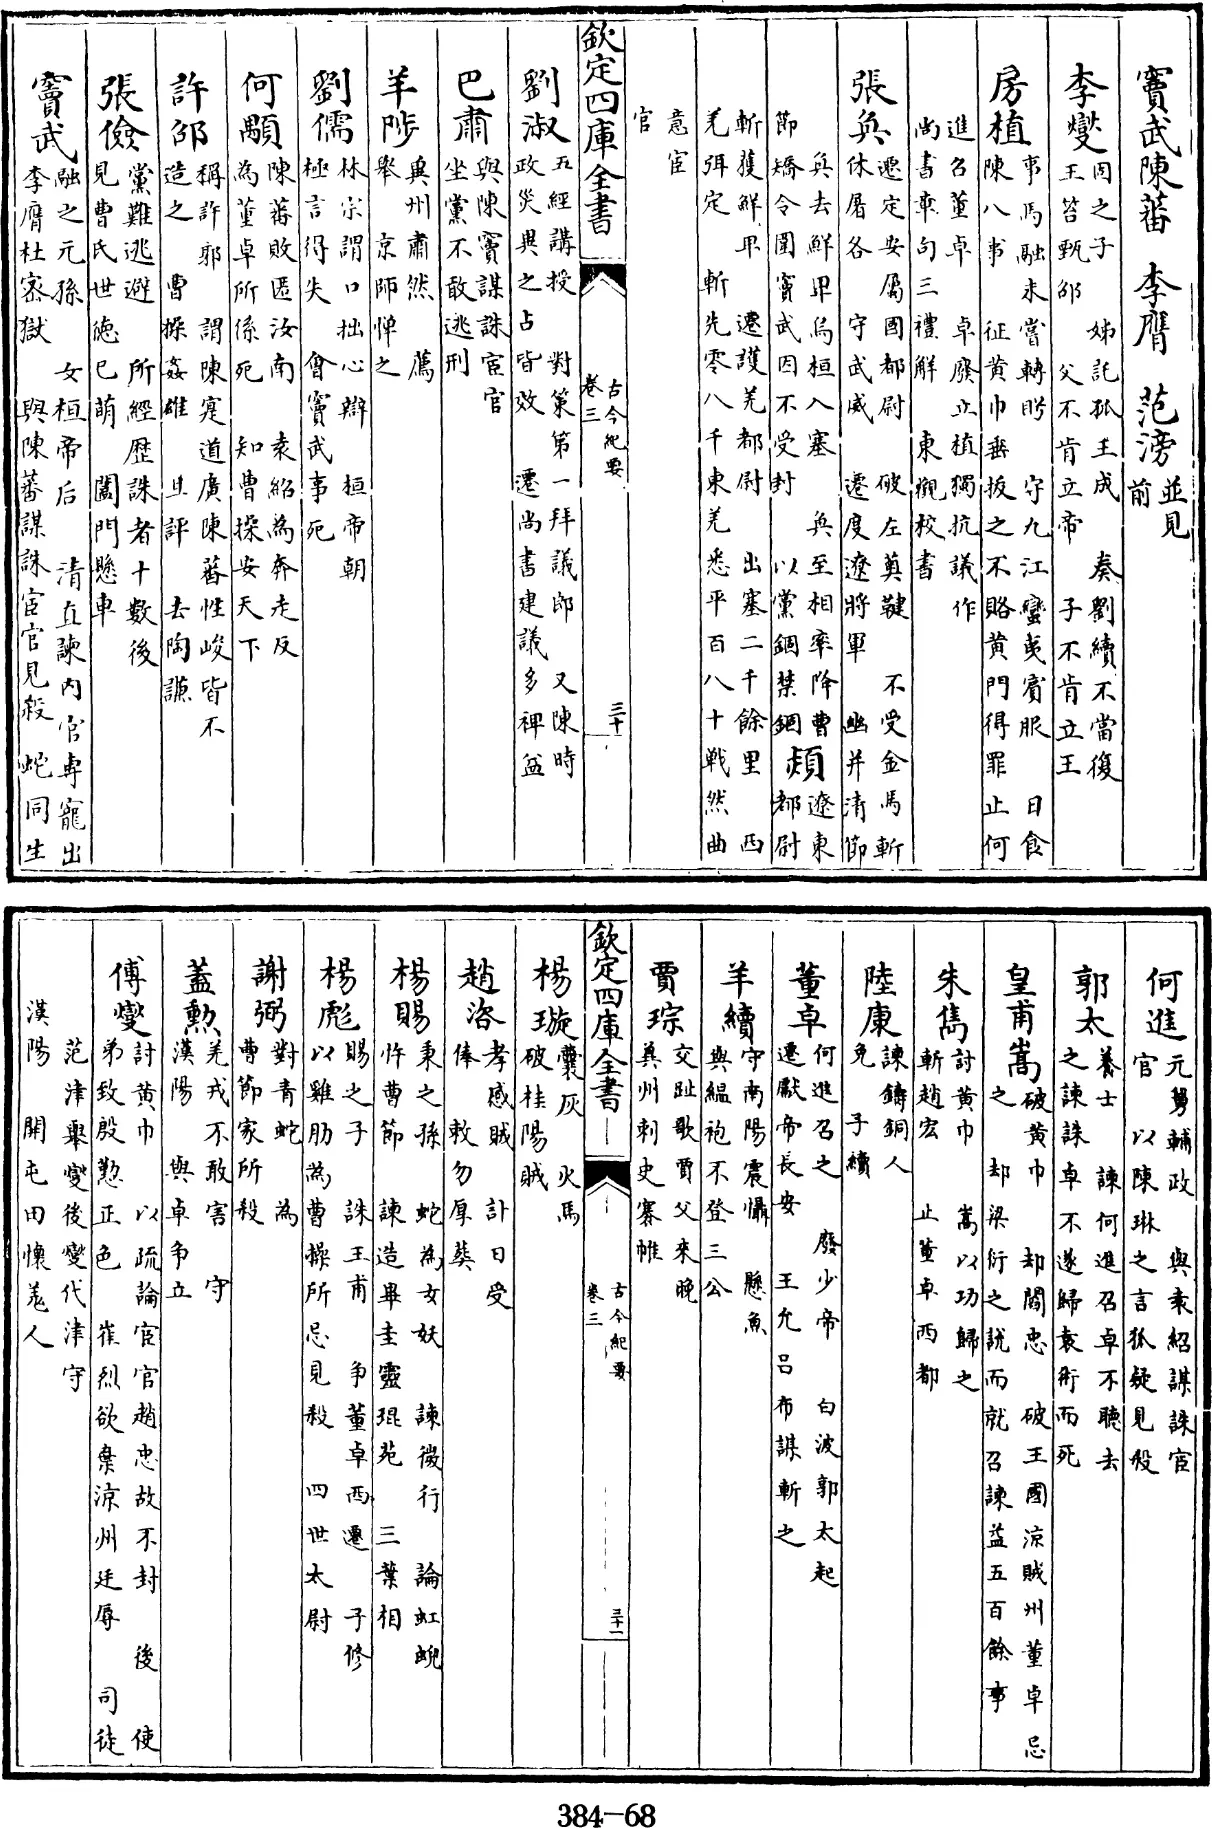 竇武陳蕃 李膺 范滂並見前
李燮固之子 姊託孤王成 奏劉續不當復
王苔甄邵 父不肯立帝 子不肯立王
房植事馬融未嘗轉眄 守九江蠻夷賓服 日食
陳八事 征黃巾垂拔之不賂黃門得罪止何
進召董卓 卓廢立植獨抗議作
尚書章句三禮解 東觀校書
張奐遷定安屬國都尉 破左奠鞬 不受金馬斬
休屠各 守武威 遷度遼將軍 幽并清節
奐去鮮卑烏桓入塞 奐至相率降曹
節矯令圍竇武因不受封 以黨錮禁錮
熲遼東都尉
斬獲鮮卑 遷護羌都尉 出塞二千餘里 西
羌弭定 斬先零八千東羌悉平百八十戰然曲
意宦
官
欽定四庫全書 古今紀要 卷三 三十
劉淑五經講授 對策第一拜議郎 又陳時
政災異之占皆效 遷尚書建議多裨益
巴肅與陳竇謀誅宦官
坐黨不敢逃刑
羊陟冀州肅然 薦
舉 京師憚之
劉儒林宗謂口拙心辯 桓帝朝
極言得失 會竇武事死
何顒陳蕃敗匿汝南 袁紹為奔走友
為董卓所係死 知曹操安天下
許邵稱許郭 謂陳寔道廣陳蕃性峻皆不
造之 曹操姦雄 旦評 去陶謙
張儉黨難逃避 所經歷誅者十數後
見曹氏世德已萌 闔門懸車
竇武融之元孫 女桓帝后 清直諫內官專寵出
李膺杜密獄 與陳蕃謀誅宦官見殺 蛇同生
何進元舅輔政 與袁紹謀誅宦
官 以陳琳之言狐疑見殺
郭太養士 諫何進召卓不聽去
之諫誅卓不遂歸袁術而死
皇甫嵩破黃巾 却閻忠 破王國涼賊州董卓忌
之 却梁衍之說而就召諫益五百餘事
朱雋討黃巾 嵩以功歸之
斬趙宏 止董卓西都
陸康諫鑄銅人
免 子績
董卓何進召之 廢少帝 白波郭太起
遷獻帝長安 王允呂布謀斬之
羊續守南陽震懾 懸魚
與縕袍不登三公
賈琮交趾歌賈父來晚
冀州刺史褰帷
欽定四庫全書 古今紀要 卷三 三十一
楊璇囊灰 火馬
破桂陽賊
趙咨孝感賊 計日受
俸 敕勿厚葬
楊賜秉之孫 蛇為女妖 諫微行 論虹蜺
忤曹節 諫造畢圭靈琨苑 三葉相
楊彪賜之子 誅王甫 爭董卓西遷 子修
以雞肋為曹操所忌見殺 四世太尉
謝弼對青蛇 為
曹節家所殺
蓋勲羌戎不敢害 守
漢陽 與卓爭立
傅燮討黃巾 以疏論宦官趙忠故不封 後使
弟致殷懃正色 崔烈欲棄涼州廷辱 司徒
范津舉燮後燮代津守
漢陽 開屯田懷羌人
384-68